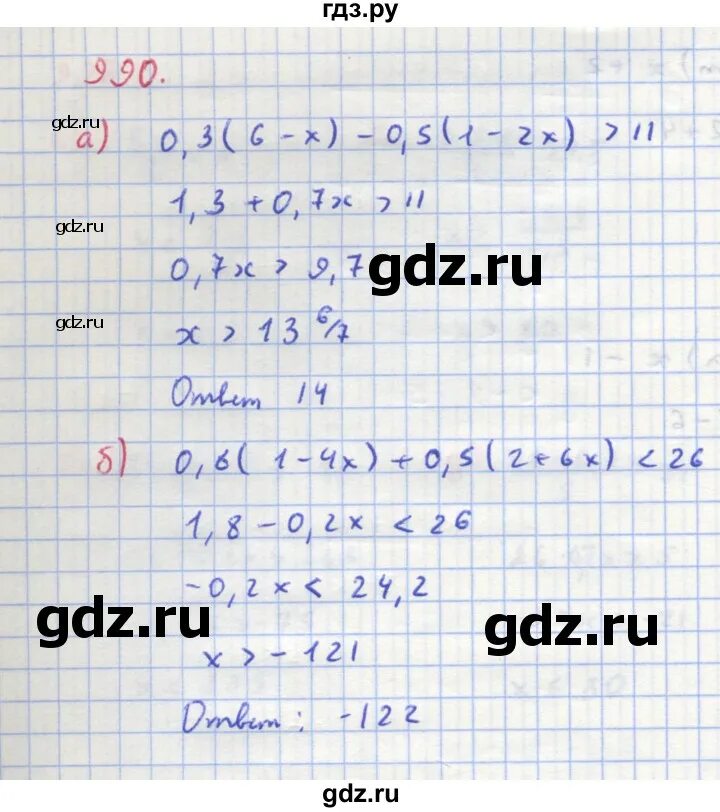 гдз.ру
990.
gdz.ru
а) 0,3(6-x)-0,5(1-2x) > 11
1,3 + 0,7x > 11
gdz.ru
0,7x > 9,7
gdz.ru
gdz.ru
x > 13 6/7
Ответ 14
б) 0,6(1-4x)+0,5(2+6x) < 26
1,8 - 0,2x < 26
-0,2x < 24,2
gdz.ru
gdz.ru
x > -121
Ответ: -122
gdz.ru